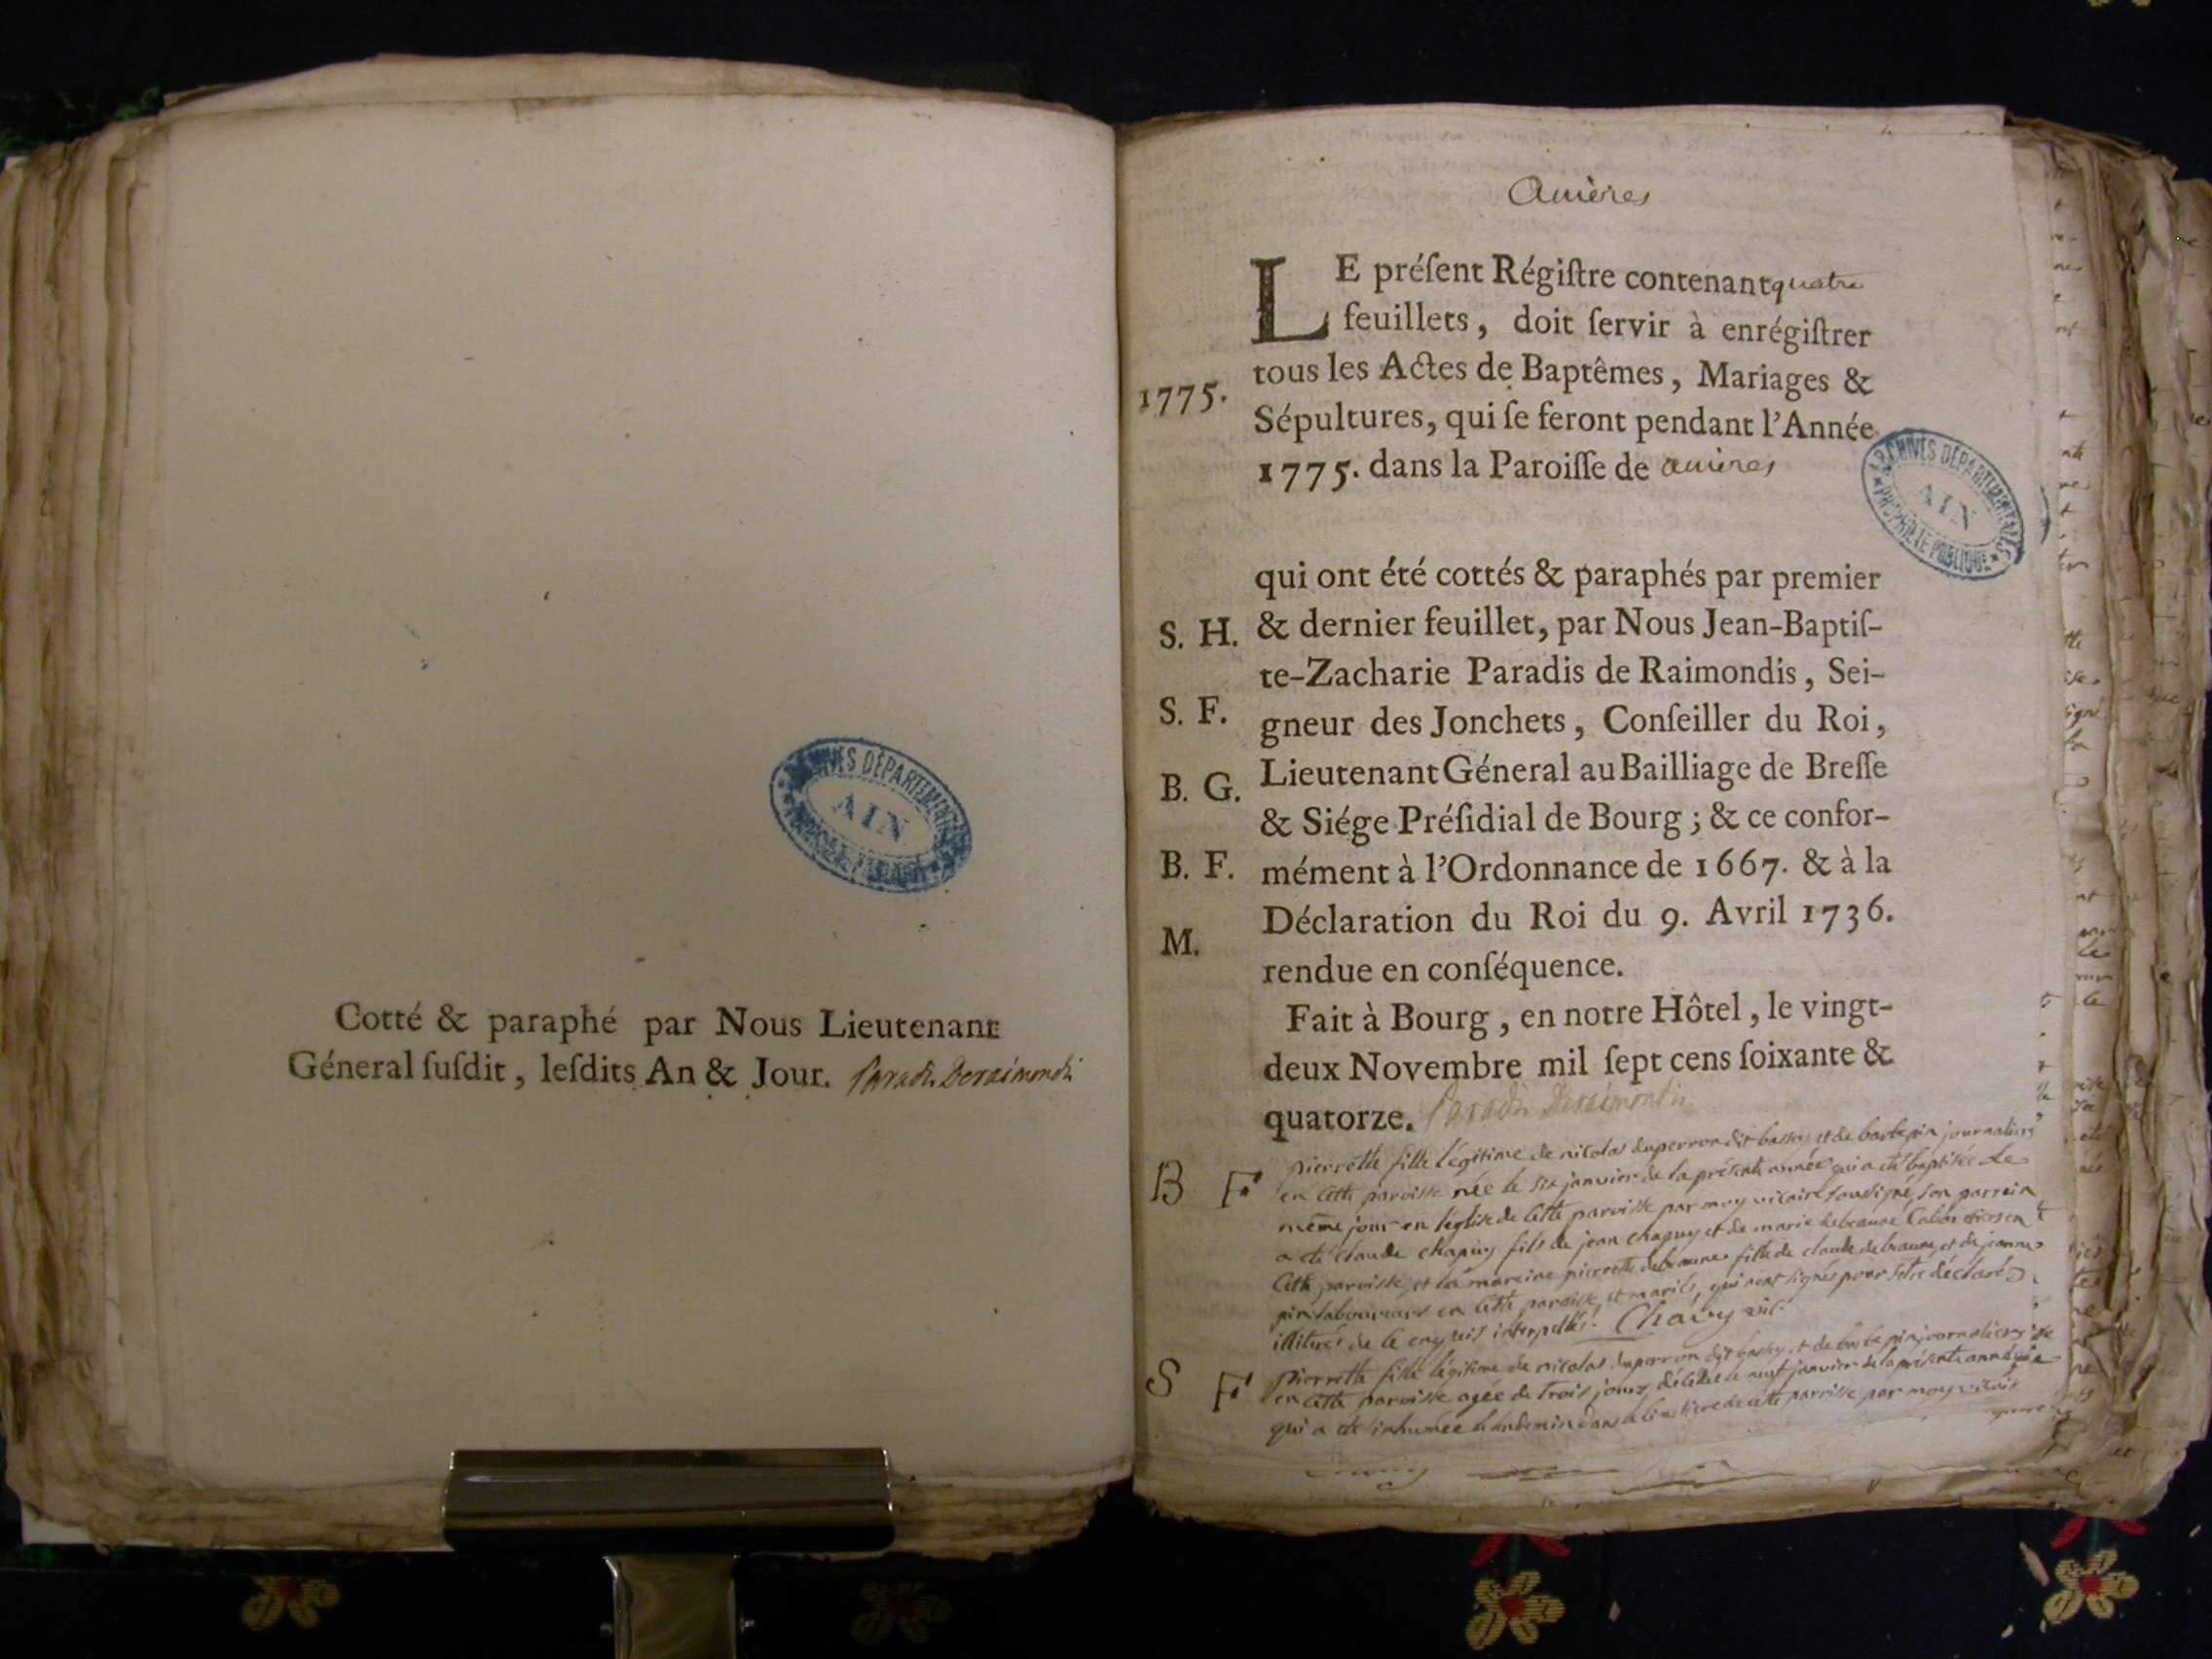 Cotté & paraphé par Nous Lieutenant
Géneral ſuſdit, leſdits An & Jour. Paradis Deraimondis
ARCHIVES DÉPARTEMENTALES
AIN
Asnières
LE préſent Régiſtre contenant quatre
feuillets, doit ſervir à enrégiſtrer
tous les Actes de Baptêmes, Mariages &
1775.
Sépultures, qui ſe feront pendant l'Année
1775. dans la Paroiſſe de asnieres
ARCHIVES DÉPARTEMENTALES
AIN
PROPRIÉTÉ PUBLIQUE
qui ont été cottés & paraphés par premier
S. H. & dernier feuillet, par Nous Jean-Baptiſ-
te-Zacharie Paradis de Raimondis, Sei-
S. F. gneur des Jonchets, Conſeiller du Roi,
B. G. Lieutenant Géneral au Bailliage de Breſſe
& Siége Préſidial de Bourg ; & ce confor-
B. F. mément à l'Ordonnance de 1667. & à la
Déclaration du Roi du 9. Avril 1736.
M. rendue en conſéquence.
Fait à Bourg, en notre Hôtel, le vingt-
deux Novembre mil ſept cens ſoixante &
quatorze. Paradis Deraimondis
B F pierrette fille légitime de nicolas duperron dit et de barbe pin journaliers
en cette paroisse née le six janvier de la présente année qui a été baptisée le
même jour en l'église de cette paroisse par moy vicaire soussigné, son parrein
a été claude chapuy fils de jean chapuy et de marie debeaune laboureurs en
cette paroisse, et la mareine pierrette debeaune fille de claude debeaune et de jeanne
pin laboureurs en cette paroisse, et mariés, qui n'ont signés pour s'être déclarés
illitérés de ce enquis interpellés. Chavy vic.
S F pierrette fille légitime de nicolas duperron dit et de barbe pin journaliers
en cette paroisse agée de trois jours, décédée le neuf janvier de la présente année
qui a été inhumée le lendemain dans le cimetiere de cette parroisse par moy vicaire